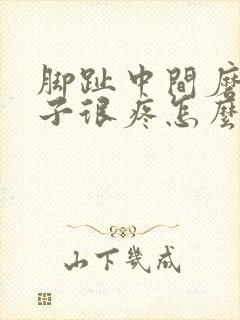 脚趾中間磨
子很疼怎麼
山下幾成